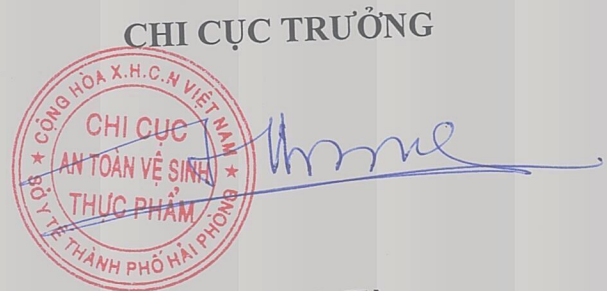 CHI CỤC TRƯỞNG
CỘNG HÒA X.H.C.N VIỆT NAM
CHI CỤC
AN TOÀN VỆ SINH
THỰC PHẨM
SỞ Y TẾ THÀNH PHỐ HẢI PHÒNG